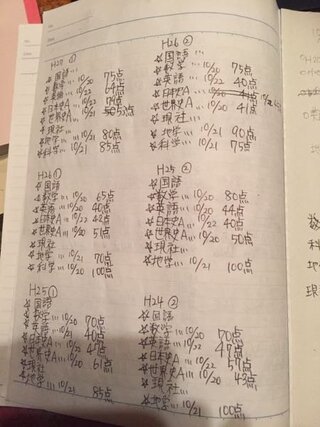 H27 ①
☆国語…
☆数学… 10/20 75点
☆英語… 10/22 64点
☆日本史A… 10/22 74点
☆世界史A… 10/20 52点
☆現社…
☆地学… 10/21 80点
☆科学… 10/21 85点
H26 ②
☆国語…
☆数学… 10/20 75点
☆英語… 10/22 40点
☆日本史A… 10/20
☆世界史A… 10/20 41点
☆現社…
☆地学… 10/21 90点
☆科学… 10/21 75点
H26 ①
☆国語
☆数学… 10/20 65点
☆英語… 10/20 40点
☆日本史A… 10/22 42点
☆世界史A… 10/20 50点
☆現社
☆地学… 10/21 70点
☆科学… 10/20 100点
H25 ②
☆国語
☆数学… 10/20 80点
☆英語… 10/20 44点
☆日本史A… 10/22 40点
☆世界史A… 10/20 50点
☆現社
☆地学… 10/21 100点
H25 ①
☆国語
☆数学… 10/20 70点
☆英語… 10/20 40点
☆日本史A… 10/22 47点
☆世界史A… 10/20 61点
☆現社
☆地学… 10/21 85点
H24 ②
☆国語
☆数学… 10/20 70点
☆英語… 10/22 47点
☆日本史A… 10/22 57点
☆世界史A… 10/20 43点
☆現社…
☆地学… 10/21 100点